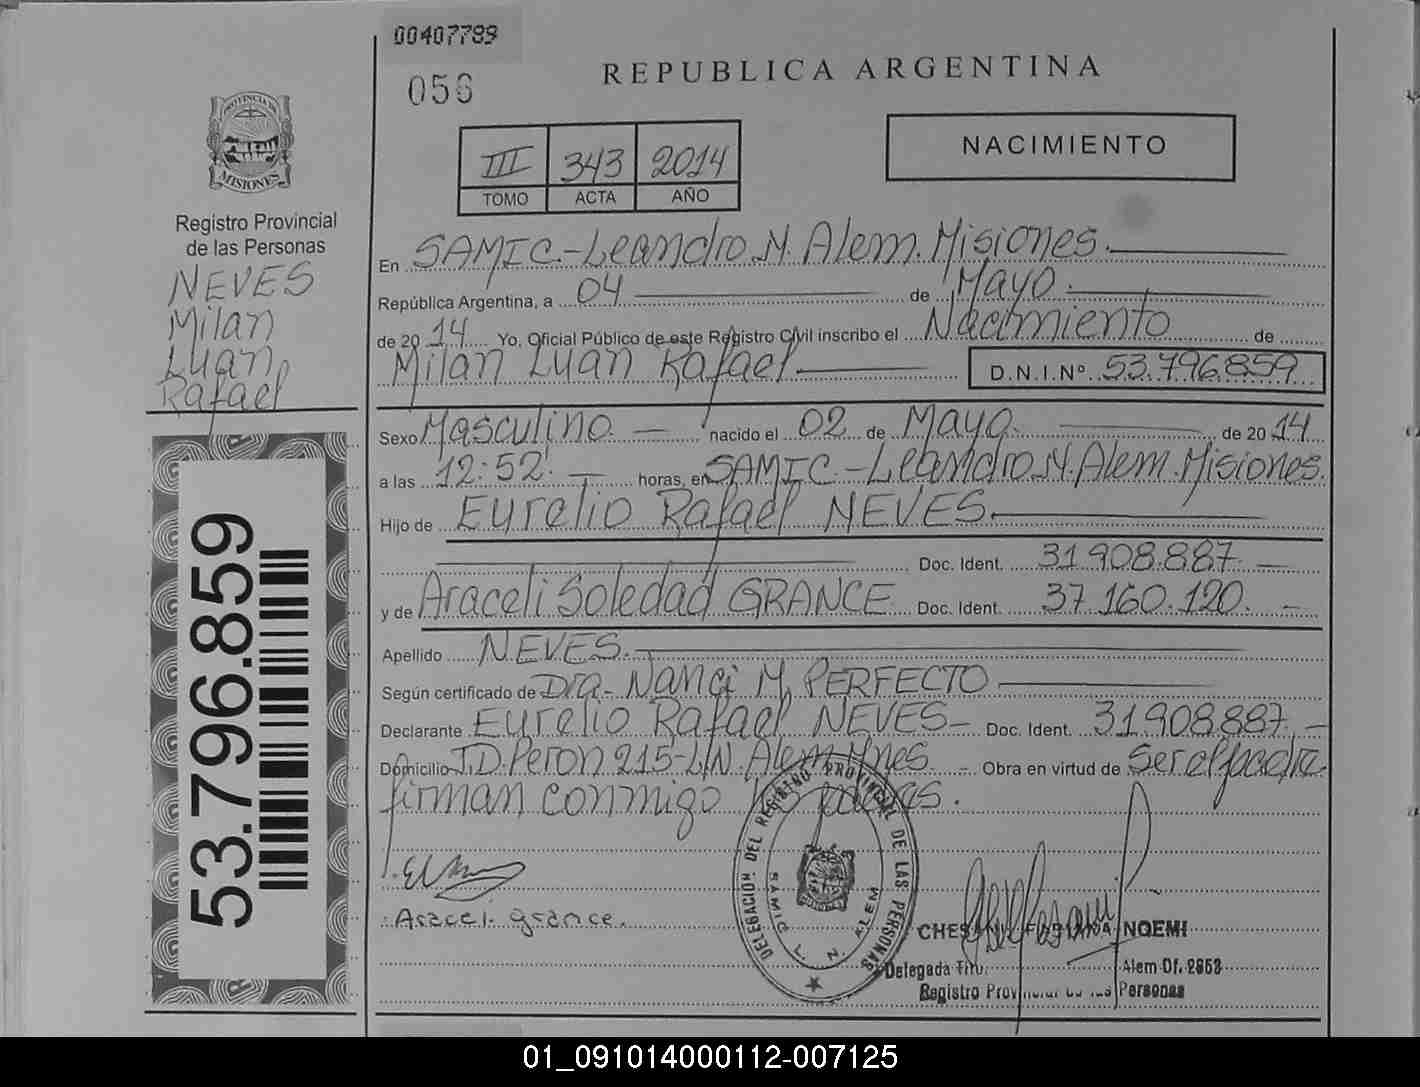 00407789
056
REPUBLICA ARGENTINA
PROVINCIA DE
MISIONES
Registro Provincial
de las Personas
NEVES
Milan
Luan
Rafael
53.796.859
III 343 2014
TOMO ACTA AÑO
NACIMIENTO
En SAMIC.-Leandro.N.Alem.Misiones.
República Argentina, a 04 de Mayo.
de 2014 Yo, Oficial Público de este Registro Civil inscribo el Nacimiento de
Milan Luan Rafael D.N.I.Nº 53.796.859
Sexo Masculino. nacido el 02 de Mayo. de 2014
a las 12:52. horas, en SAMIC.-Leandro.N.Alem.Misiones.
Hijo de Eurelio Rafael NEVES.
Doc. Ident. 31.908.887.
y de Araceli Soledad GRANCE Doc. Ident. 37.160.120.
Apellido NEVES.
Según certificado de Dra.- Nanci M. PERFECTO
Declarante Eurelio Rafael NEVES- Doc. Ident. 31.908.887.-
Domicilio J.D.Peron 215-L.N.Alem.Mnes. - Obra en virtud de Ser el padre
firman conmigo los padres.
Araceli grance.
DELEGACION DEL REGISTRO PROVINCIAL DE LAS PERSONAS
SAMIC L. N. ALEM
FABIANA NOEMI
Delegada Alem Of. 2853
Registro Provincial de las Personas
01_091014000112-007125